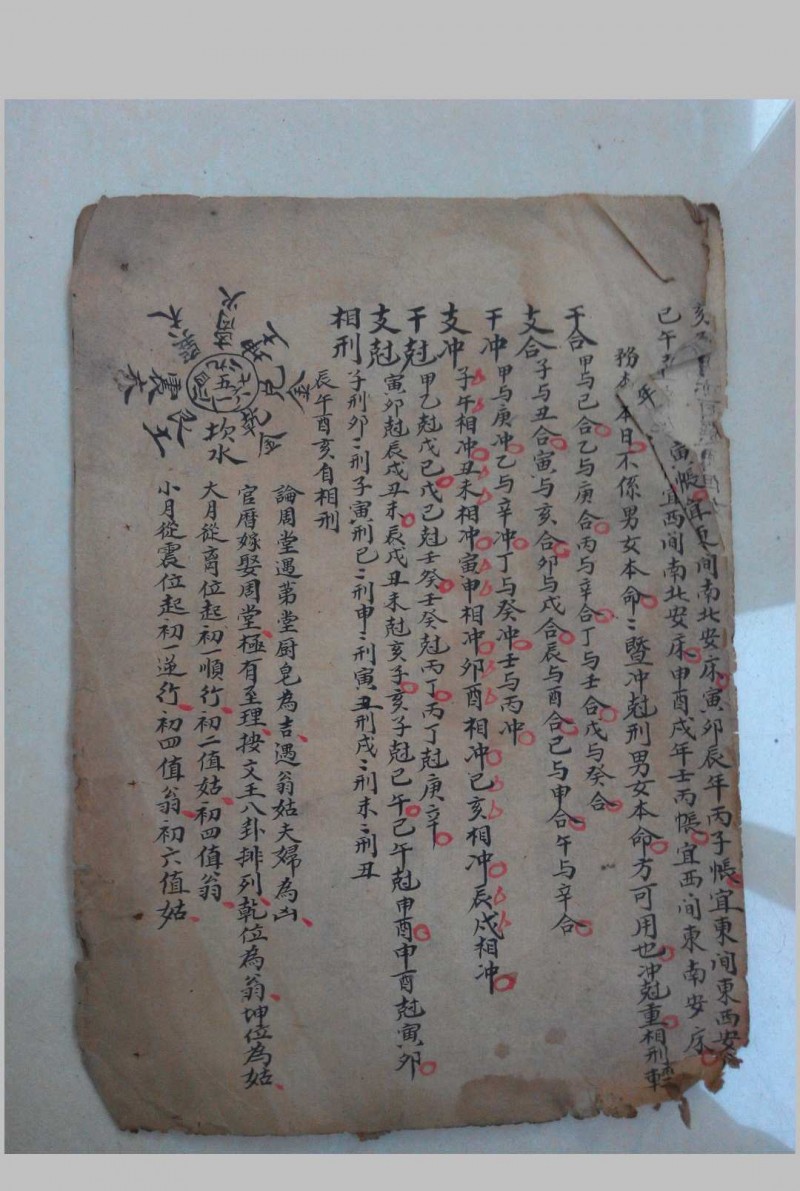 亥 間南北安床寅卯辰年丙子帳宜東间東西安
巳午 寅帳宜西间南北安床申酉戌年壬丙帳宜西间東南安床
務 本日不係男女本命〻暨冲尅刑男女本命方可用也冲尅重相刑輕
干合甲与己合乙与庚合丙与辛合丁与壬合戊与癸合
支合子与丑合寅与亥合卯与戌合辰与酉合巳与申合午与辛合
干冲甲与庚冲乙与辛冲丁与癸冲壬与丙冲
支冲子午相冲丑未相冲寅申相冲卯酉相冲巳亥相冲辰戌相冲
干尅甲乙尅戊己戊己尅壬癸壬癸尅丙丁丙丁尅庚辛
支尅寅卯尅辰戌丑未辰戌丑未尅亥子亥子尅巳午巳午尅申酉申酉尅寅卯
相刑子刑卯〻刑子寅刑巳〻刑申〻刑寅丑刑戌〻刑未〻刑丑
辰午酉亥自相刑
論周堂遇第堂厨皂為吉遇翁姑夫婦為凶
官曆嫁娶周堂極有至理按文王八卦排列乾位為翁坤位為姑
大月從离位起初一順行初二值姑初四值翁
小月從震位起初一逆行初四值翁初六值姑
坎水
离火